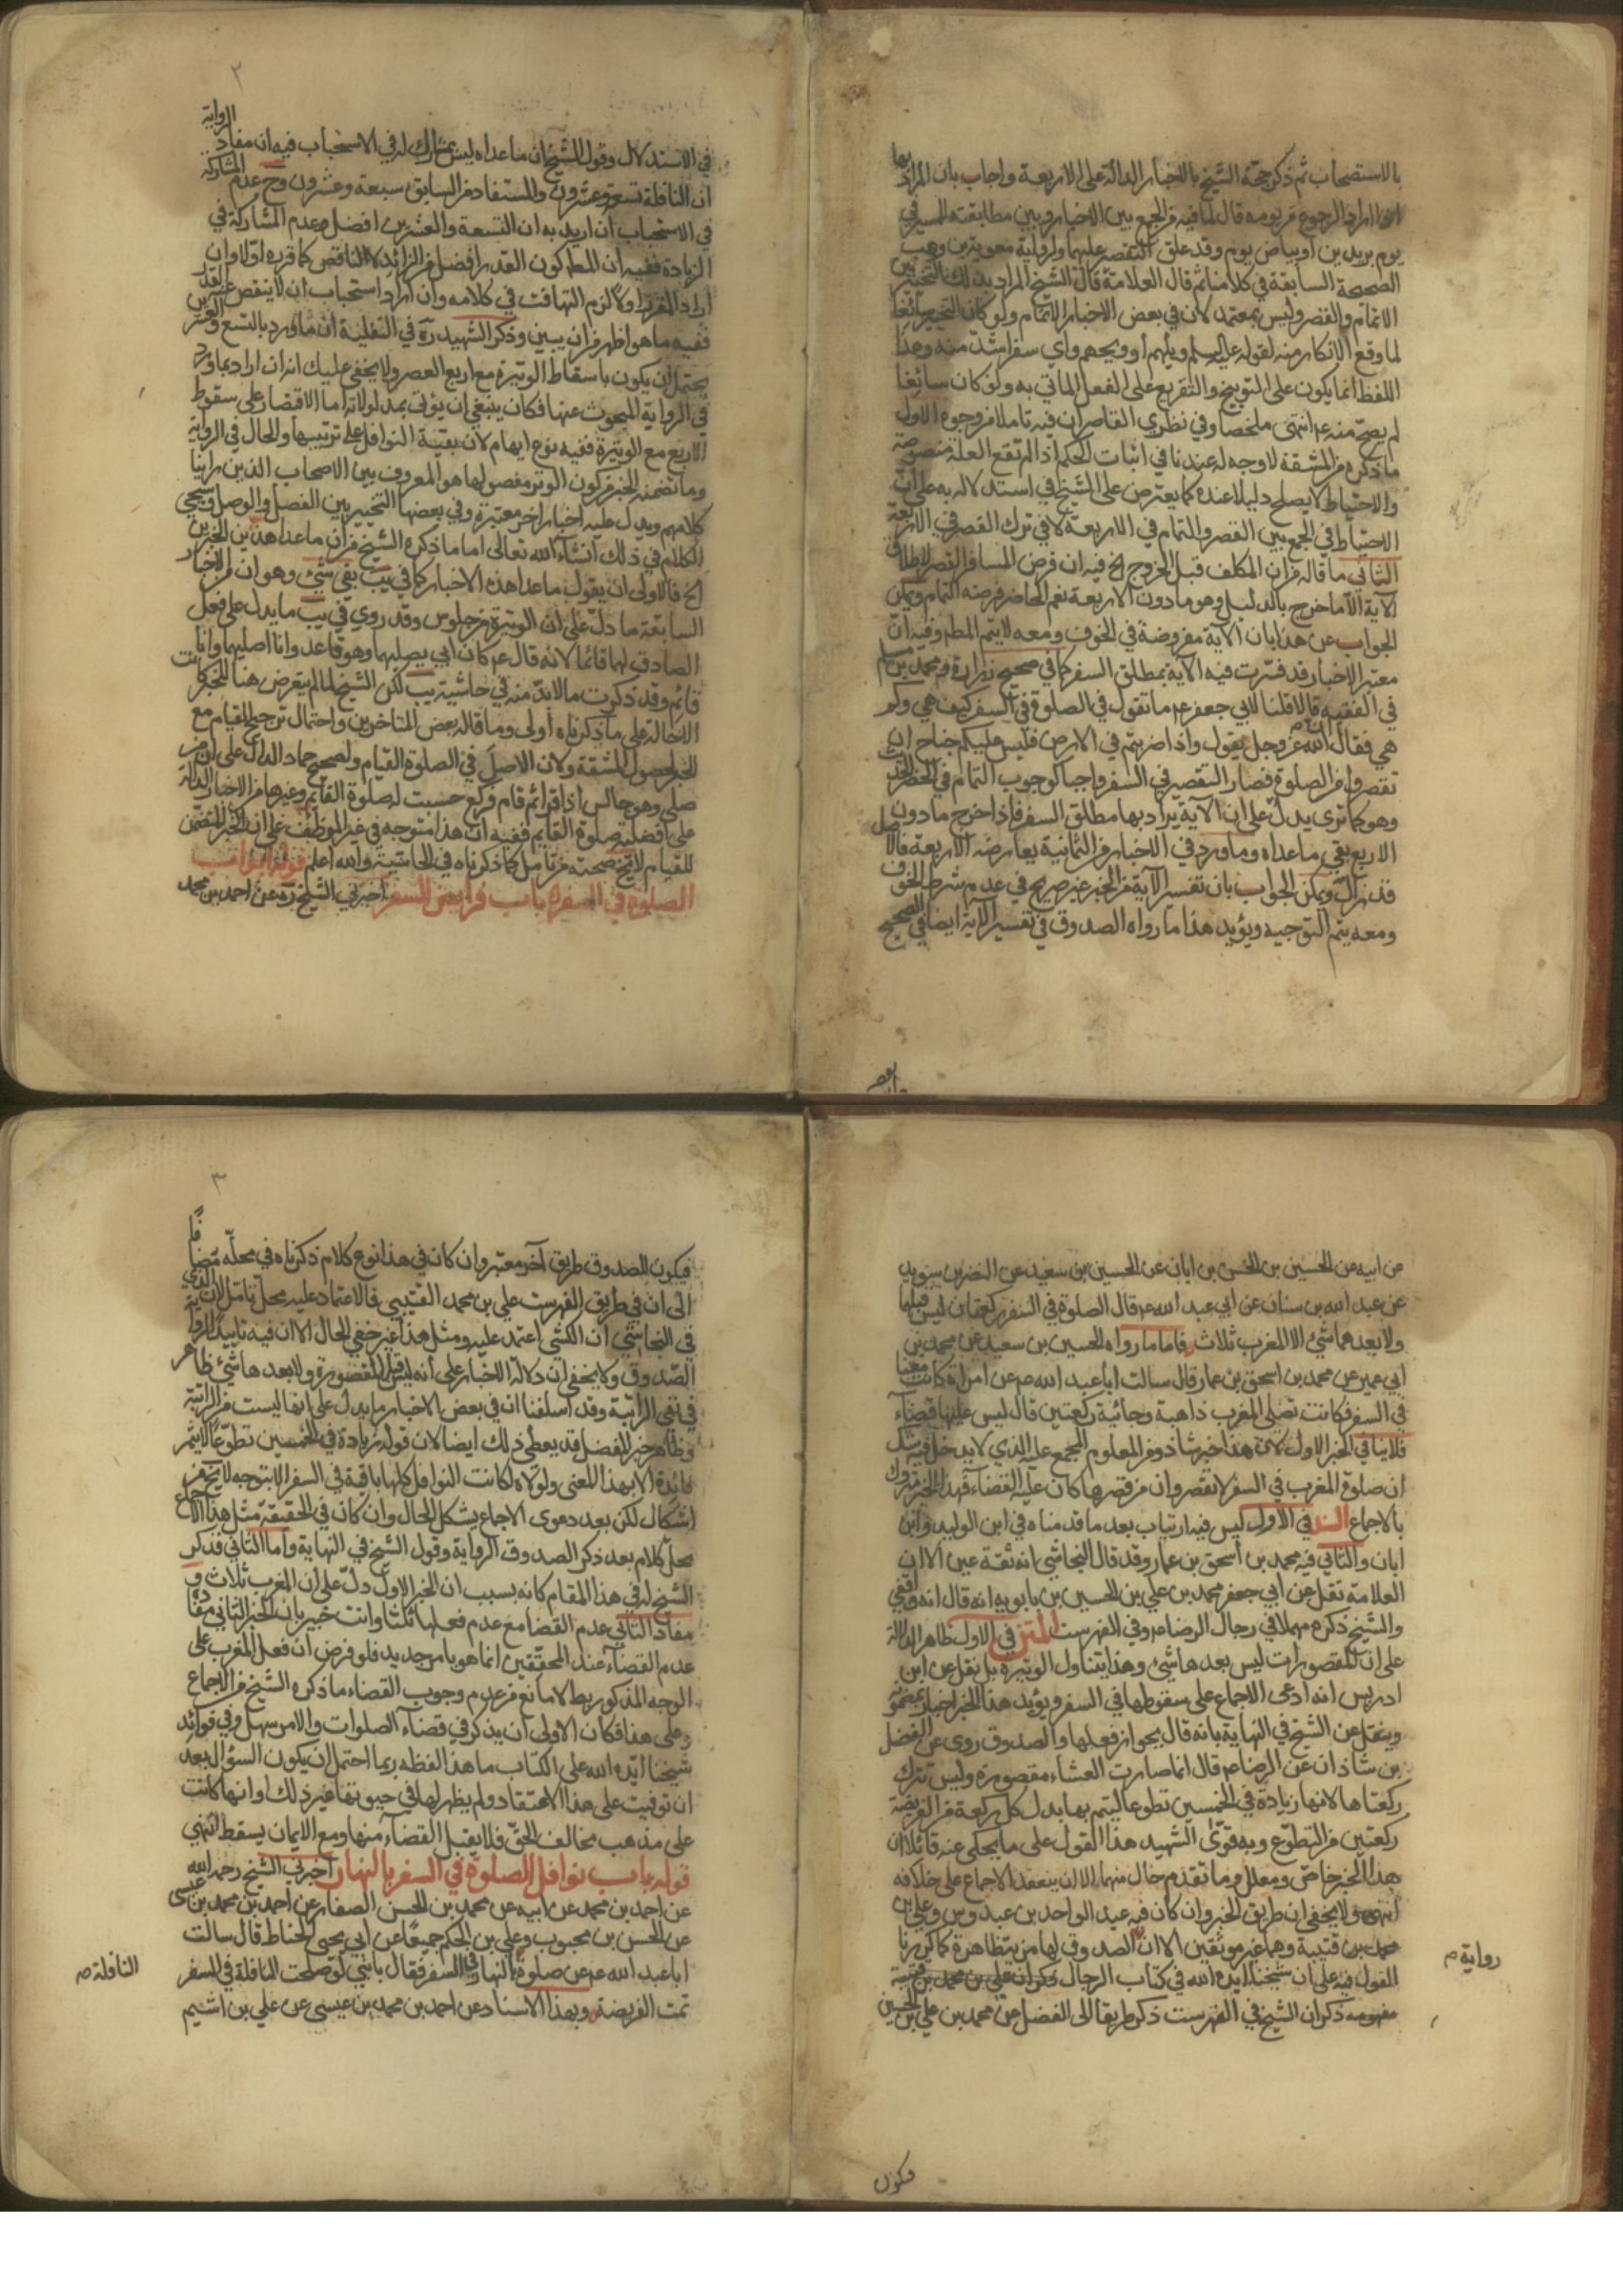 بالاستصحاب ثم ذكر حجة الشيخ بالاخبار الدالة على الاربعة واجاب بان المراد بها
اذا اراد الرجوع من يومه قال لما فيه من الجمع بين الاخبار وبين مطابقته للسير في
يوم بريدين او بياض يوم وقد علق التقصير عليهما ولرواية معوية بن وهب
الصحيحة السابقة في كلامنا ثم قال العلامة قال الشيخ المراد بذلك التخيير بين
الاتمام والقصر وليس بمعتمد لان في بعض الاخبار الاتمام ولو كان التخيير سائغا
لما وقع الانكار منه لقوله عليه السلم ويلهم او ويحهم واي سفر اشد منه وهذا
اللفظ انما يكون على التوبيخ والتقريع على الفعل الماتي به ولو كان سائغا
لم يصح منه ع انتهى ملخصا وفي نظري القاصر ان فيه تاملا من وجوه الاول
ما ذكره من المشقة لا وجه له عندنا في اثبات الحكم اذا لم تقع العلة منصوصة
والاحتياط لا يصلح دليلا عنده كما يعترض على الشيخ في استدلاله به على ان
الاحتياط في الجمع بين القصر والتمام في الاربعة لا في ترك القصر في الاربعة
الثاني ما قاله من ان المكلف قبل الخروج الخ فيه ان فرض المسافر القصر لاطلاق
الآية الا ما خرج بالدليل وهو ما دون الاربعة نعم الحاضر فرضه التمام ويمكن
الجواب عن هذا بان الآية مفروضة في الخوف ومعه لا يتم المط وفيه ان
معتبر الاخبار قد فسرت فيه الآية بمطلق السفر كما في صحيح زرارة ومحمد بن مسلم
في الفقيه قالا قلنا لابي جعفر ع ما تقول في الصلوة في السفر كيف هي وكم
هي فقال ان الله عز وجل يقول واذا ضربتم في الارض فليس عليكم جناح ان
تقصروا من الصلوة فصار التقصير في السفر واجبا كوجوب التمام في الحضر الحديث
وهو كما ترى يدل على ان الآية يراد بها مطلق السفر فاذا خرج ما دون
الاربع بقي ما عداه وما ورد في الاخبار من الثمانية يعارضه الاربعة فالاصل
قد زال ويمكن الجواب بان تفسير الآية من الخبر غير صريح في عدم شرط الخوف
ومعه يتم التوجيه ويؤيد هذا ما رواه الصدوق في تفسير الآية ايضا في الصحيح
٢
في الاستدلال وقول الشيخ ان ما عداه ليس بمشارك له في الاستحباب فيه ان مفاد الرواية
ان النافلة تسع وعشرون والمستفاد من السابق سبعة وعشرون وح عدم المشاركة
في الاستحباب ان اريد به ان التسعة والعشرين افضل وعدم المشاركة في
الزيادة ففيه ان المط كون القدر افضل من الزائد لا الناقص كما قرره اولا وان
اراد المقرر اولا لزم التهافت في كلامه وان اراد استحباب ان لا ينقص عن القدر
ففيه ما هو اظهر من ان يبين وذكر الشهيد ره في النفلية ان ما ورد بالتسع والعشرين
يحتمل ان يكون باسقاط الوتيرة مع اربع العصر ولا يخفى عليك انه ان اراد بما ورد
في الرواية المبحوث عنها فكان ينبغي ان يؤتى بمدلولاته اما الاقتصار على سقوط
الاربع مع الوتيرة ففيه نوع ايهام لان بقية النوافل على ترتيبها والحال في الرواية
وما تضمنه الخبر من كون الوتر مفصولها هو المعروف بين الاصحاب الذين راينا
كلامهم ويدل عليه اخبار اخر معتبرة وفي بعضها التخيير بين الفصل والوصل وسيجي
الكلام في ذلك انشاء الله تعالى اما ما ذكره الشيخ من ان ما عدا هذين الخبرين
الخ فالاولى ان يقول ما عدا هذه الاخبار كما في يب بقي شئ وهو ان من الاخبار
السابقة ما دل على ان الوتيرة من جلوس وقد روي في يب ما يدل على فعل
الصادق لها قائما لانه قال ع كان ابي يصليهما وهو قاعد وانا اصليهما وانا
قائم وقد ذكرت ما لا بد منه في حاشية يب لكن الشيخ لما لم يتعرض هنا للخبر كانت
الاحالة على ما ذكرناه اولى وما قاله بعض المتاخرين واحتمال ترجيح القيام مع
الخبر لحصول المشقة ولان الاصل في الصلوة القيام ولصحيح حماد الدال على ان من
صلى وهو جالس اذا قرا ثم قام فركع حسبت له صلوة القايم وغيرها من الاخبار الدالة
على افضلية صلوة القايم ففيه ان هذا متوجه في غير الموظف على ان الخبر المتضمن
للقيام لا يخ صحته من تامل كما ذكرناه في الحاشية والله اعلم قوله ابواب
الصلوة في السفر باب فرايض السفر اخبرني الشيخ ره عن احمد بن محمد
عن ابيه عن الحسين بن الحسن بن ابان عن الحسين بن سعيد عن النضر بن سويد
عن عبد الله بن سنان عن ابي عبد الله ع قال الصلوة في السفر ركعتان ليس قبلها
ولا بعدهما شئ الا المغرب ثلاث فاما ما رواه الحسين بن سعيد عن محمد بن
ابي عمير عن محمد بن اسحق بن عمار قال سالت ابا عبد الله ع عن امراة كانت معنا
في السفر فكانت تصلي المغرب ذاهبة وجائية ركعتين قال ليس عليها قضاء
فلا ينافي الخبر الاول لان هذا خبر شاذ ومن المعلوم المجمع عليه الذي لا يدخل فيه شك
ان صلوة المغرب في السفر لا تقصر وان من قصرها كان عليه القضاء فهذا الخبر متروك
بالاجماع السند في الاول ليس فيه ارتياب بعد ما قدمناه في ابن الوليد وابن
ابان والثاني فيه محمد بن اسحق بن عمار وقد قال النجاشي انه ثقة عين الا ان
العلامة نقل عن ابي جعفر محمد بن علي بن الحسين بن بابويه انه قال انه واقفي
والشيخ ذكره مهملا في رجال الرضا ع وفي الفهرست المتن في الاول ظاهر الدلالة
على ان المقصورات ليس بعدها شئ وهذا يتناول الوتيرة بل نقل عن ابن
ادريس انه ادعى الاجماع على سقوطها في السفر ويؤيد هذا الخبر اخبار بمضمونه
وينقل عن الشيخ في النهاية بانه قال بجواز فعلها والصدوق روى عن الفضل
بن شاذان عن الرضا ع قال انما صارت العشاء مقصورة وليس تترك
ركعتاها لانها زيادة في الخمسين تطوعا ليتم بها بدل كل ركعة من الفريضة
ركعتين من التطوع وبه قوى الشهيد هذا القول على ما يحكى عنه قائلا ان
هذا الخبر خاص ومعلل وما تقدم خال منهما الا ان ينعقد الاجماع على خلافه
انتهى ولا يخفى ان طريق الخبر وان كان فيه عبد الواحد بن عبدوس وعلي بن
محمد بن قتيبة وهما غير موثقين الا ان الصدوق لها مزيتظاهرة كما كررنا
القول فيه على ان شيخنا ايده الله في كتاب الرجال ذكر ان علي بن محمد بن قتيبة
ذكر ان الشيخ في الفهرست ذكر طريقا الى الفضل عن محمد بن علي بن الحسين
رواية م
فيكون
٣
فيكون للصدوق طريق آخر معتبر وان كان في هذا نوع كلام ذكرناه في محله مضافا
الى ان في طريق الفهرست علي بن محمد القتيبي فالاعتماد عليه محل تامل لان الذي
في النجاشي ان الكشي اعتمد عليه ومثل هذا غير خفي الحال الا ان فيه تاييدا لرواية
الصدوق ولا يخفى ان دلالة الاخبار على انه ليس قبل المقصورة ولا بعدها شئ ظاهر
في نفي الراتبة وقد اسلفنا ان في بعض الاخبار ما يدل على انها ليست من الراتبة
وظاهر خبر الفضل قد يعطي ذلك ايضا لان قوله زيادة في الخمسين تطوعا لا يثمر
فائدة الا بهذا المعنى ولولاه لكانت النوافل كلها باقية في السفر الا بتوجه لا يخ من
اشكال لكن بعد دعوى الاجماع يشكل الحال وان كان في الحقيقة مثل هذا الاجماع
محل كلام بعد ذكر الصدوق الرواية وقول الشيخ في النهاية واما الثاني فذكر
الشيخ له في هذا المقام كانه بسبب ان الخبر الاول دل على ان المغرب ثلاث و
مفاد الثاني عدم القضا مع عدم فعلها ثلثا وانت خبير بان الخبر الثاني مفاده
عدم القضاء عند المحققين انما هو بامر جديد فلو فرض ان فعل المغرب على
الوجه المذكور يبط لا مانع من عدم وجوب القضاء ما ذكره الشيخ من الاجماع
وعلى هذا فكان الاولى ان يذكر في قضاء الصلوات والامر سهل وفي فوائد
شيخنا ايده الله على الكتاب ما هذا لفظه ربما احتمل ان يكون السؤال بعد
ان توفيت على هذا الاعتقاد ولم يظهر لها في حيوتها غير ذلك او انها كانت
على مذهب مخالف الحق فلا يقبل القضاء منها ومع الايمان يسقط انتهى
قوله باب نوافل الصلوة في السفر بالنهار اخبرني الشيخ رحمه الله
عن احمد بن محمد عن ابيه عن محمد بن الحسن الصفار عن احمد بن محمد بن عيسى
عن الحسن بن محبوب وعلي بن الحكم جميعا عن ابي يحيى الحناط قال سالت
ابا عبد الله ع عن صلوة النهار في السفر فقال يا بني لو صلحت النافلة في السفر
تمت الفريضة وبهذا الاسناد عن احمد بن محمد بن عيسى عن علي بن اشيم
النافلة م